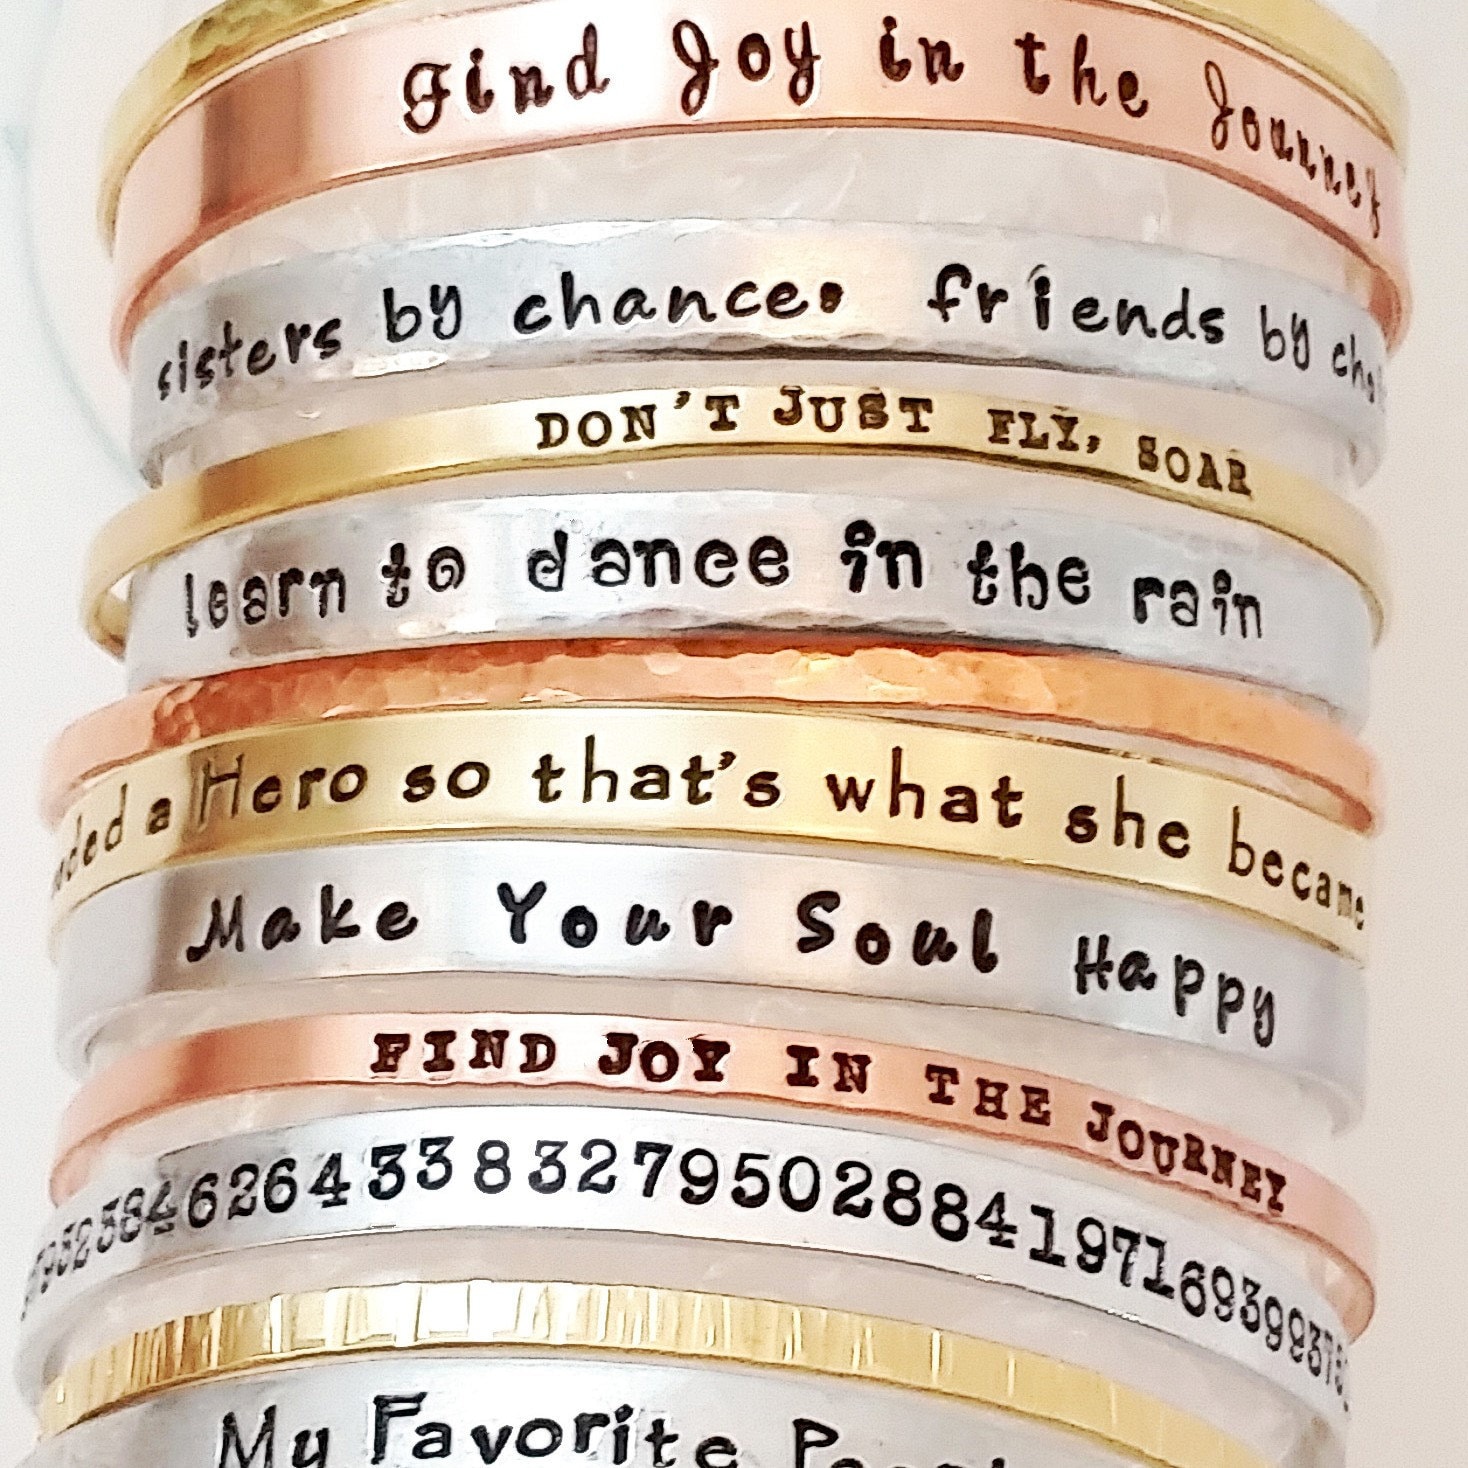 Find Joy in the Journey
sisters by chance. friends by
DON'T JUST FLY, SOAR
learn to dance in the rain
a Hero so that's what she became
Make Your Soul Happy
FIND JOY IN THE JOURNEY
79323846264338327950288419716939937
My Favorite